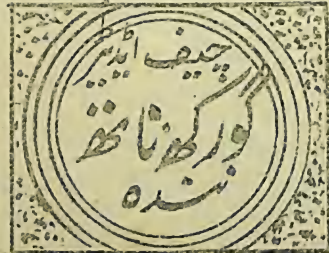 چیف ایڈیٹر
گورکھ ناتھ
نندہ